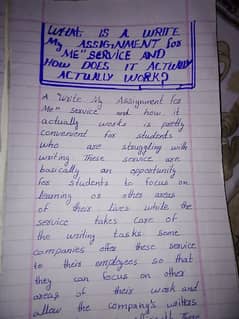 WHAT IS A WRITE
My ASSIGNMENT for
"ME" SERVICE AND
HOW DOES IT ACTUALLY
ACTUALLY WORK?
A "Write My Assignment for
Me" service and how it
actually works is pretty
convenient for students
who are struggling with
writing These service are
basically an opportunity
for students to focus on
learning or other areas
of their lives while the
service takes care of
the writing tasks some
companies offer these service
to their employees so that
they can focus on other
areas of their work and
allow the company's writers